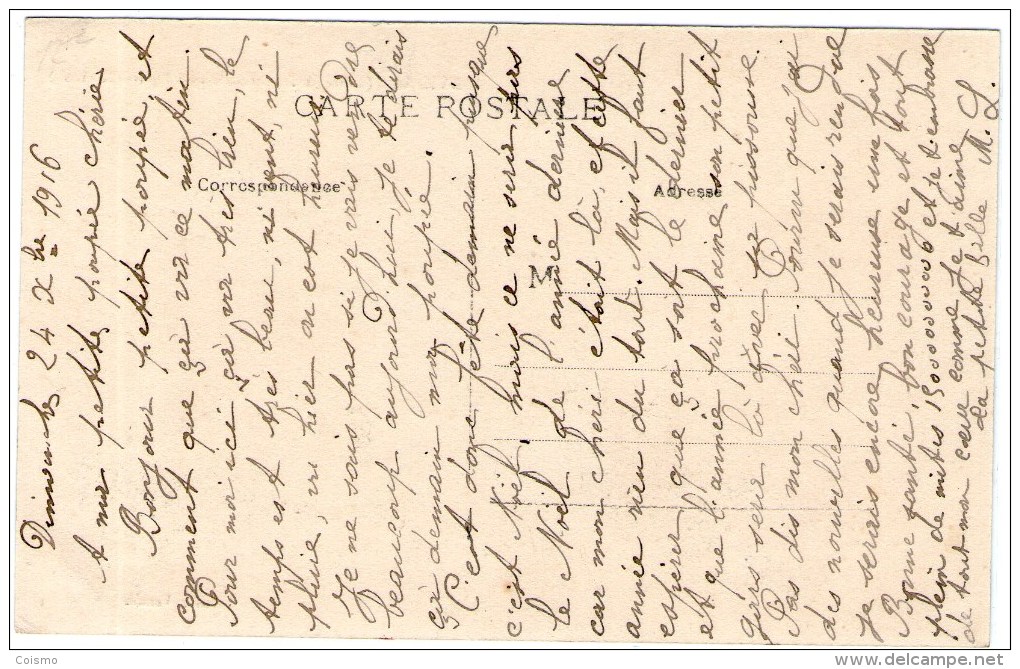 Dimanche 24 Xbre 1916
A ma petite poupée chérie
Bonjour petite poupée, et
comment que çà va ce matin.
Pour moi ici çà va très bien, le
temps est très beau, ni vent, ni
pluie, vu hier on est heureux
Je ne sais pas si je vais vendre
beaucoup aujourd'hui, je te dirais
çà demain mon poupé.
C'est donc fête demain puisque
c'est Noël, mais ce ne sera pas
le Noël de l'année dernière
car mon chéri était là, et cette
année rien du tout. Mais il faut
espérer que ça sont le dernier
et que l'année prochaine son petit
gars sera là avec sa
Pas dis mon chéri. Pourvu que j'ai
des nouvelles quand je serais rendue
je serais encore heureuse une fois
Bonne santé, bon courage et tout
plein de mitis 19000000000 et je t'embrasse
de tout mon cœur comme je t'aime
Ta petite fille M. L.
CARTE POSTALE
Correspondance
Adresse
M
Coismo
www.delcampe.net